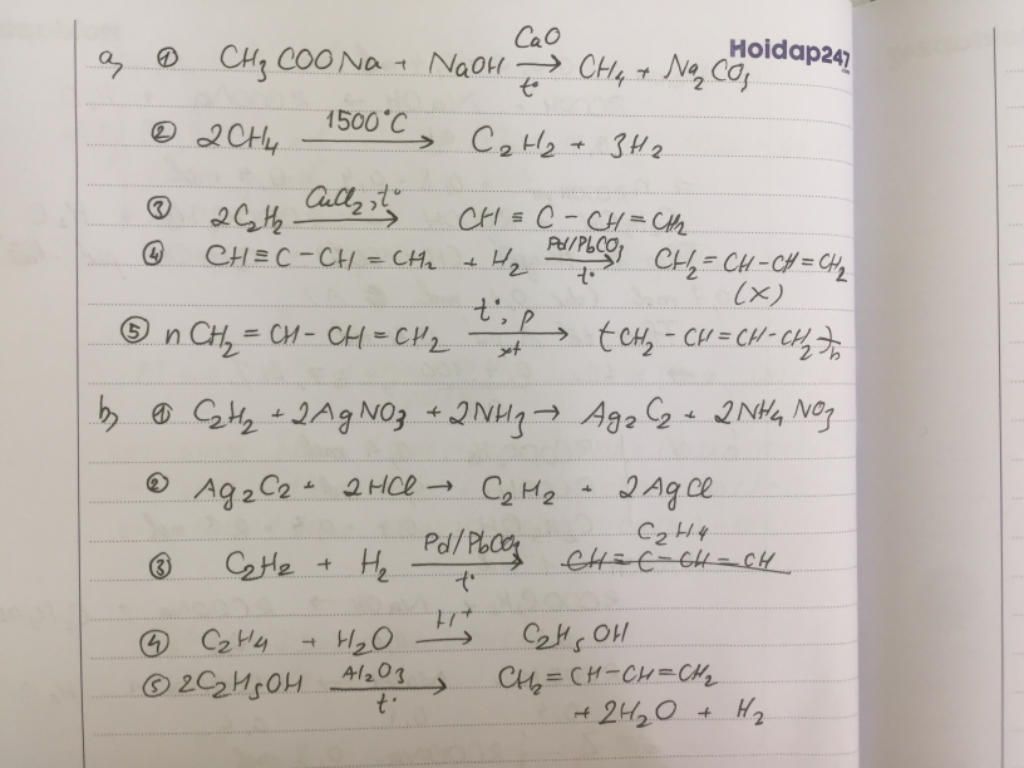 Hoidap247
a, ① CH₃COONa + NaOH →(CaO, t°) CH₄ + Na₂CO₃
② 2CH₄ →(1500°C) C₂H₂ + 3H₂
③ 2C₂H₂ →(CuCl₂, t°) CH ≡ C − CH = CH₂
④ CH ≡ C − CH = CH₂ + H₂ →(Pd/PbCO₃, t°) CH₂ = CH − CH = CH₂
(X)
⑤ nCH₂ = CH − CH = CH₂ →(t°, p, xt) (CH₂ − CH = CH − CH₂)n
b, ① C₂H₂ + 2AgNO₃ + 2NH₃ → Ag₂C₂ + 2NH₄NO₃
② Ag₂C₂ + 2HCl → C₂H₂ + 2AgCl
③ C₂H₂ + H₂ →(Pd/PbCO₃, t°) C₂H₄ CH ≡ C − CH = CH
④ C₂H₄ + H₂O →(H⁺) C₂H₅OH
⑤ 2C₂H₅OH →(Al₂O₃, t°) CH₂ = CH − CH = CH₂
+ 2H₂O + H₂